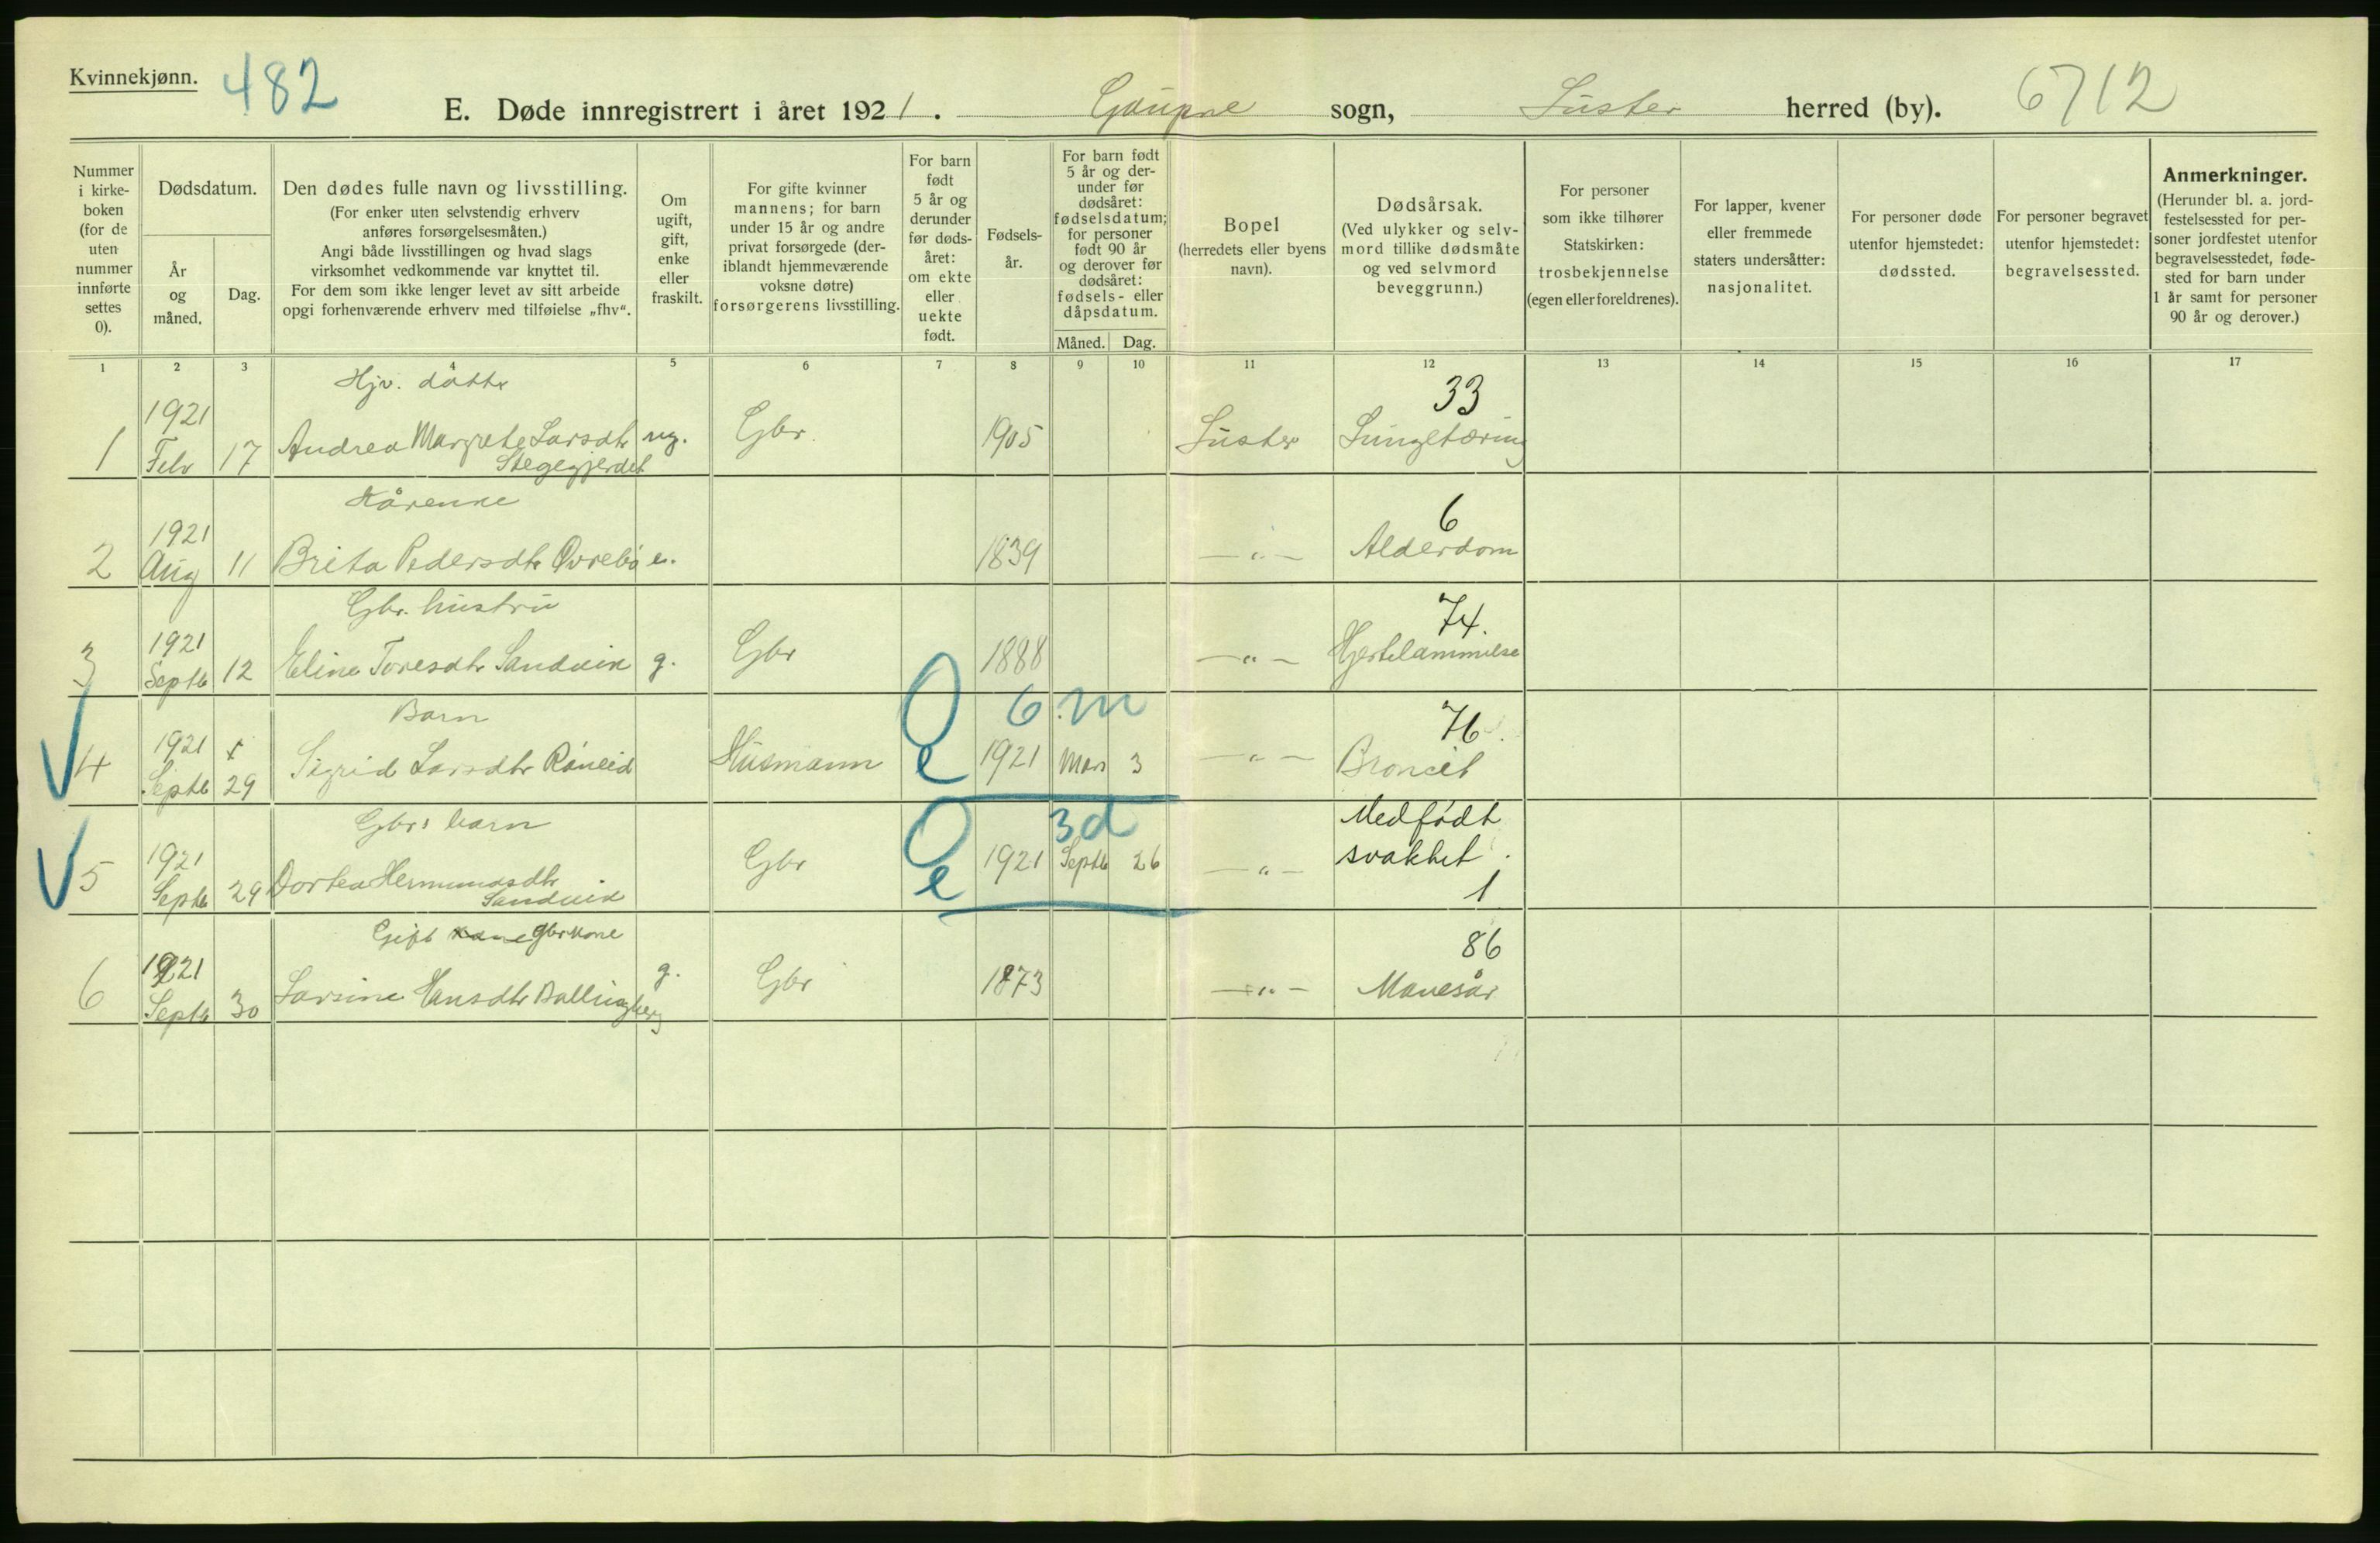 Kvinnekjønn.
482
E. Døde innregistrert i året 1921. Gaupne sogn, Luster herred (by).
6712
Nummer i kirke-boken (for de uten nummer innførte settes 0).
Dødsdatum.
År og måned.
Dag.
Den dødes fulle navn og livsstilling.
(For enker uten selvstendig erhverv anføres forsørgelsesmåten.)
Angi både livsstillingen og hvad slags virksomhet vedkommende var knyttet til.
For dem som ikke lenger levet av sitt arbeide opgi forhenværende erhverv med tilføielse „fhv“.
Om ugift, gift, enke eller fraskilt.
For gifte kvinner mannens; for barn under 15 år og andre privat forsørgede (der-iblandt hjemmeværende voksne døtre) forsørgerens livsstilling.
For barn født 5 år og derunder før døds-året: om ekte eller uekte født.
Fødsels-år.
For barn født 5 år og der-under før dødsåret: fødselsdatum; for personer født 90 år og derover før dødsåret: fødsels- eller dåpsdatum.
Måned. Dag.
Bopel
(herredets eller byens navn).
Dødsårsak.
(Ved ulykker og selv-mord tillike dødsmåte og ved selvmord beveggrunn.)
For personer som ikke tilhører Statskirken: trosbekjennelse (egen eller foreldrenes).
For lapper, kvener eller fremmede staters undersåtter: nasjonalitet.
For personer døde utenfor hjemstedet: dødssted.
For personer begravet utenfor hjemstedet: begravelsessted.
Anmerkninger.
(Herunder bl. a. jord-festelsessted for per-soner jordfestet utenfor begravelsesstedet, føde-sted for barn under 1 år samt for personer 90 år og derover.)
1 2 3 4 5 6 7 8 9 10 11 12 13 14 15 16 17
Hjv. datter 33
1 1921 Febr 17 Andrea Margrete Larsdtr Stegegjerdet ug. Gbr. 1905 Luster Lungetæring
Kårenke 6
2 1921 Aug 11 Brita Pedersdtr Øvrebø e. 1839 —„— Alderdom
Gbr. hustru 74.
3 1921 Septb 12 Eline Toresdtr Sandvik g. Gbr 1888 —„— Hjertelammelse
Barn 0 6 m 76.
4 1921 Septb 29 Sigrid Larsdtr Røneid Husmann e 1921 Mars 3 —„— Broncit
Gbrs barn 0 3 d Medfødt
5 1921 Septb 29 Dortea Hermundsdtr Sandvik Gbr e 1921 Septb 26 —„— svakhet. 1
Gift kone gbrkone 86
6 1921 Septb 30 Larsine Hansdtr Ballingberg g. Gbr 1873 —„— Mavesår